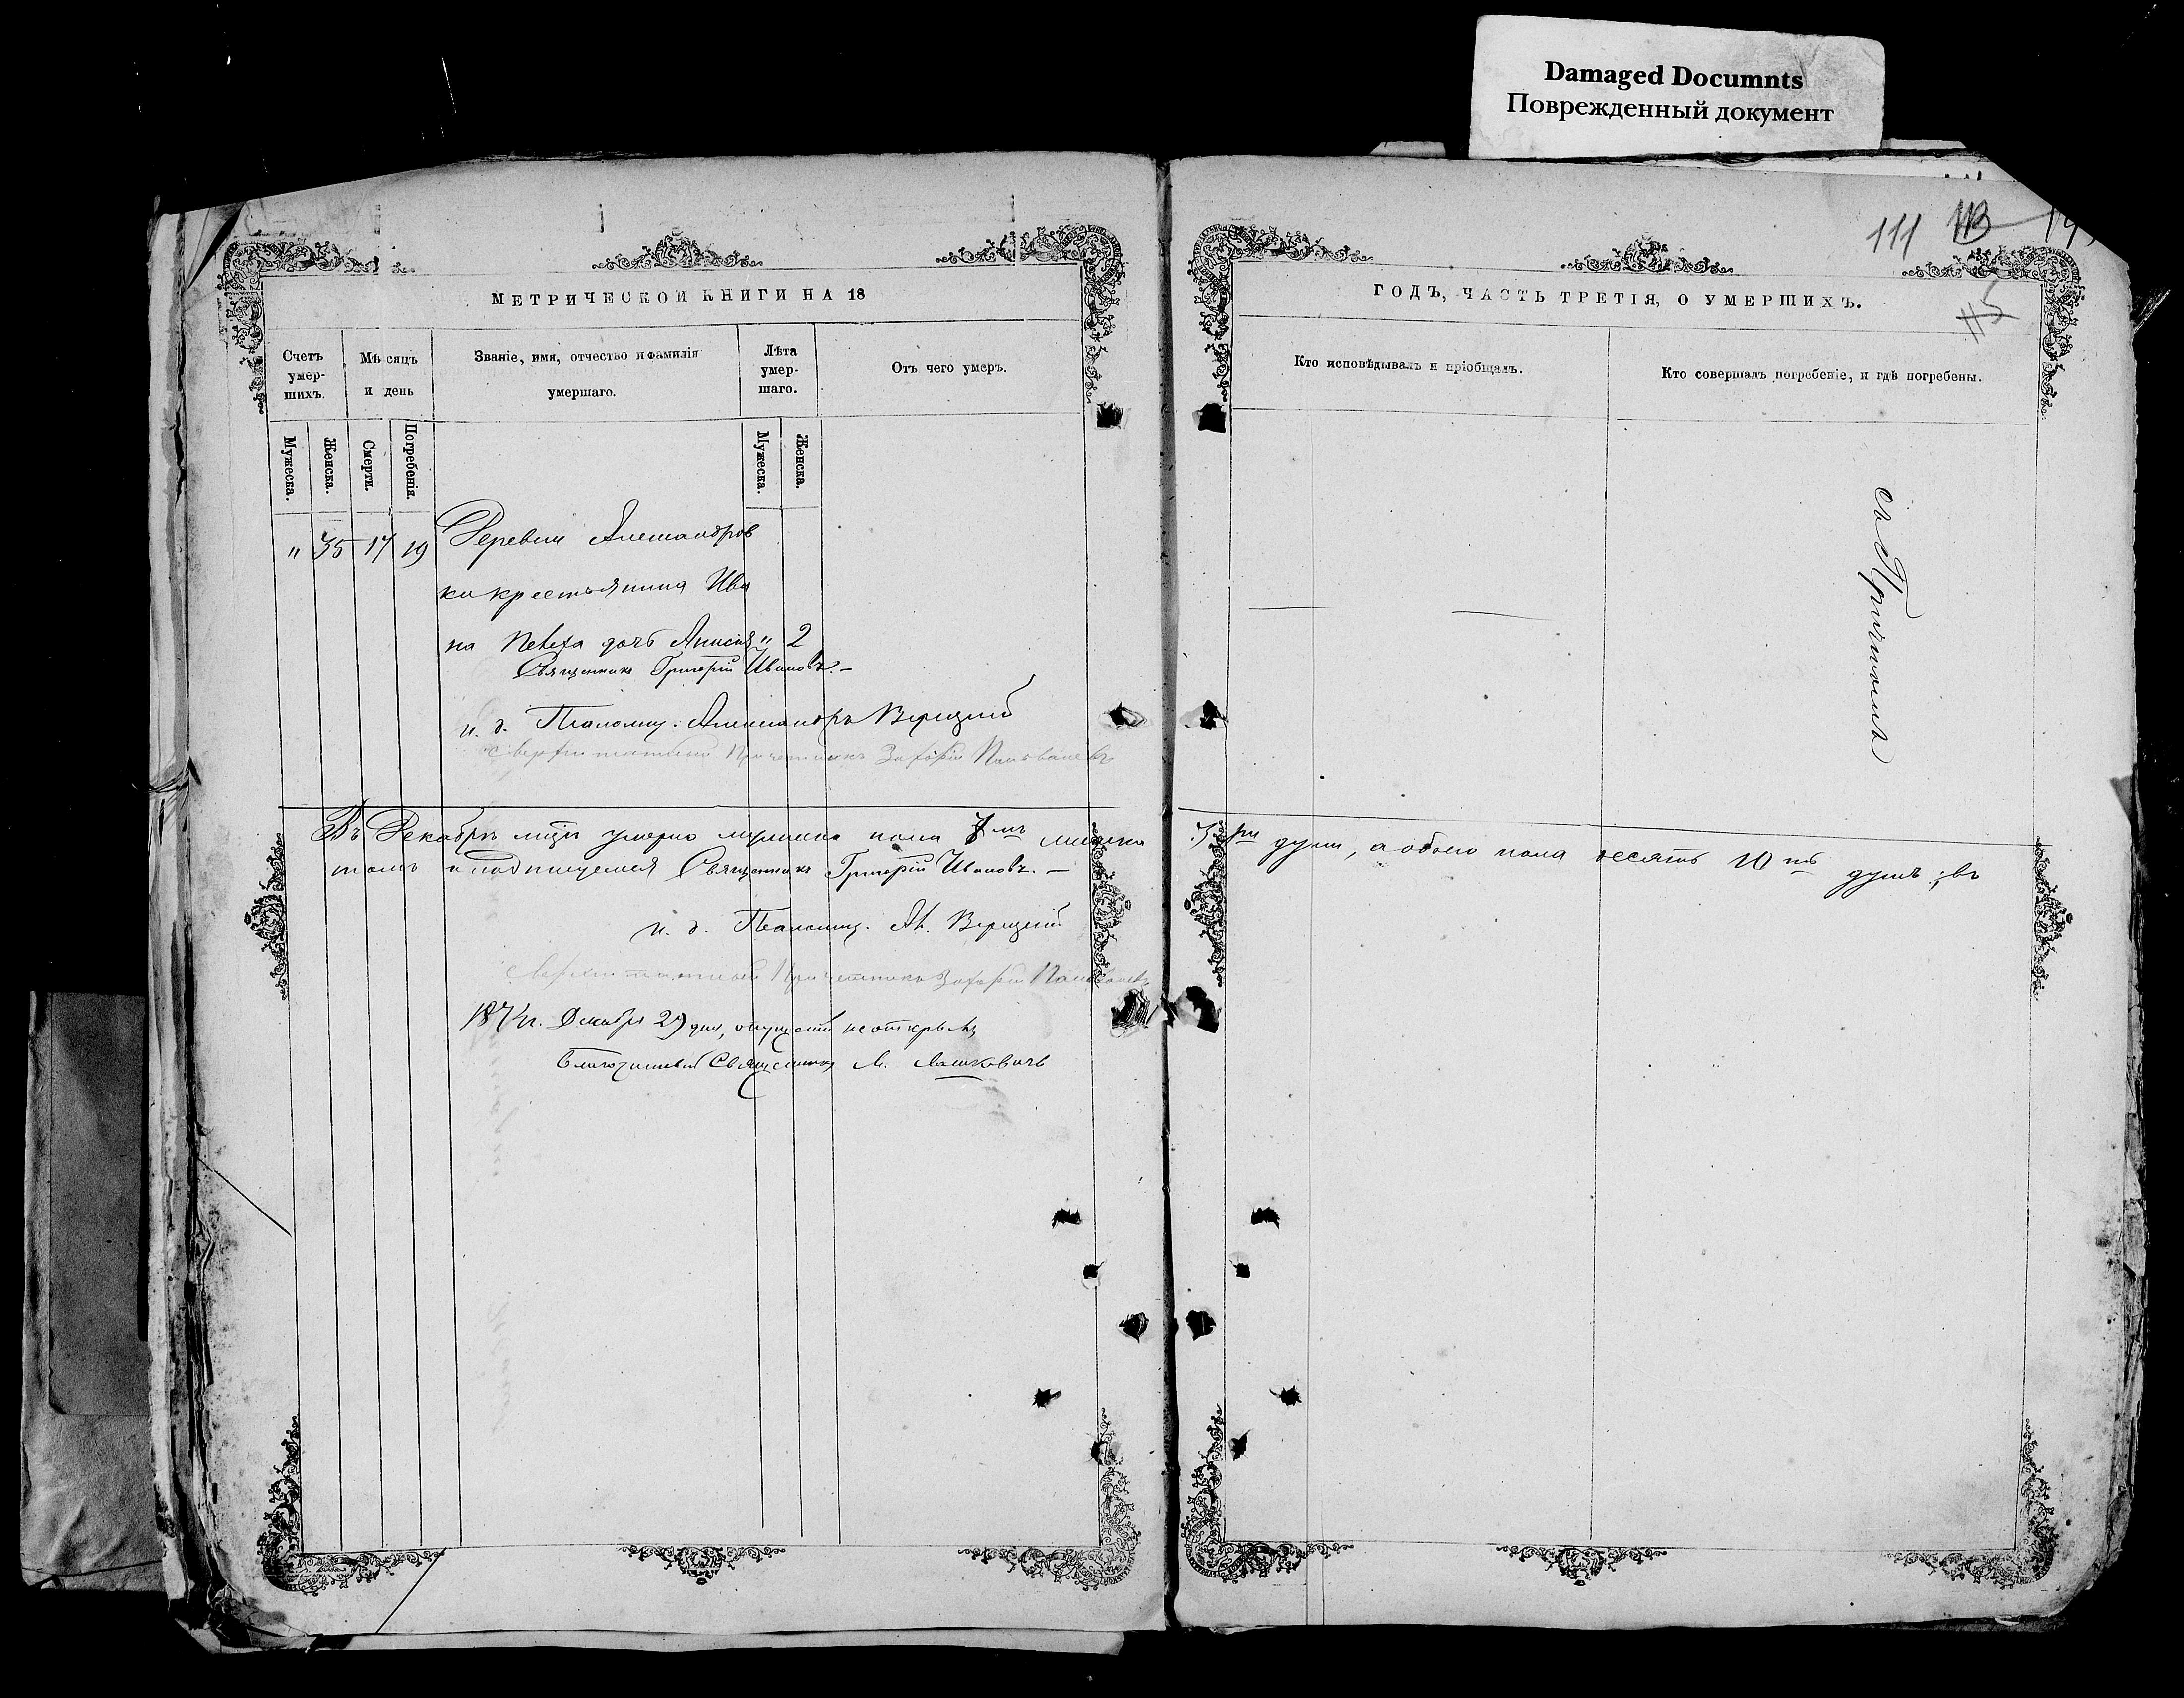 Damaged Documnts
Поврежденный документ
111 113
115
МЕТРИЧЕСКОЙ КНИГИ НА 18
Счетъ умершихъ.
Мѣсяцъ и день
Званіе, имя, отчество и фамилія умершаго.
Лѣта умершаго.
Отъ чего умеръ.
Мужеска.
Женска.
Смерти.
Погребенія.
Мужеска.
Женска.
" 35 17 19 Деревни Александров
ки крестьянина Ива
на дочь Анисія " 2
Священникъ Григорій Ивановъ. —
и. д. Псаломщ. Александръ Верецкій
сверхштатный Причетникъ Захарій
Въ Декабрѣ умерло мужеска пола 7мъ
томъ и подписуемся Священникъ Григорій Ивановъ. —
и. д. Псаломщ. Ал. Верецкій
сверхштатный Причетникъ Захарій
1874г. Декабря 29 дня, опущеній не открылъ
Благочинный Священникъ М. Лашкевичъ
ГОДЪ, ЧАСТЬ ТРЕТІЯ, О УМЕРШИХЪ.
Кто исповѣдывалъ и пріобщалъ.
Кто совершалъ погребеніе, и гдѣ погребены.
съ Причтомъ
3 ри души, а обоего пола десять 10ть душъ; въ